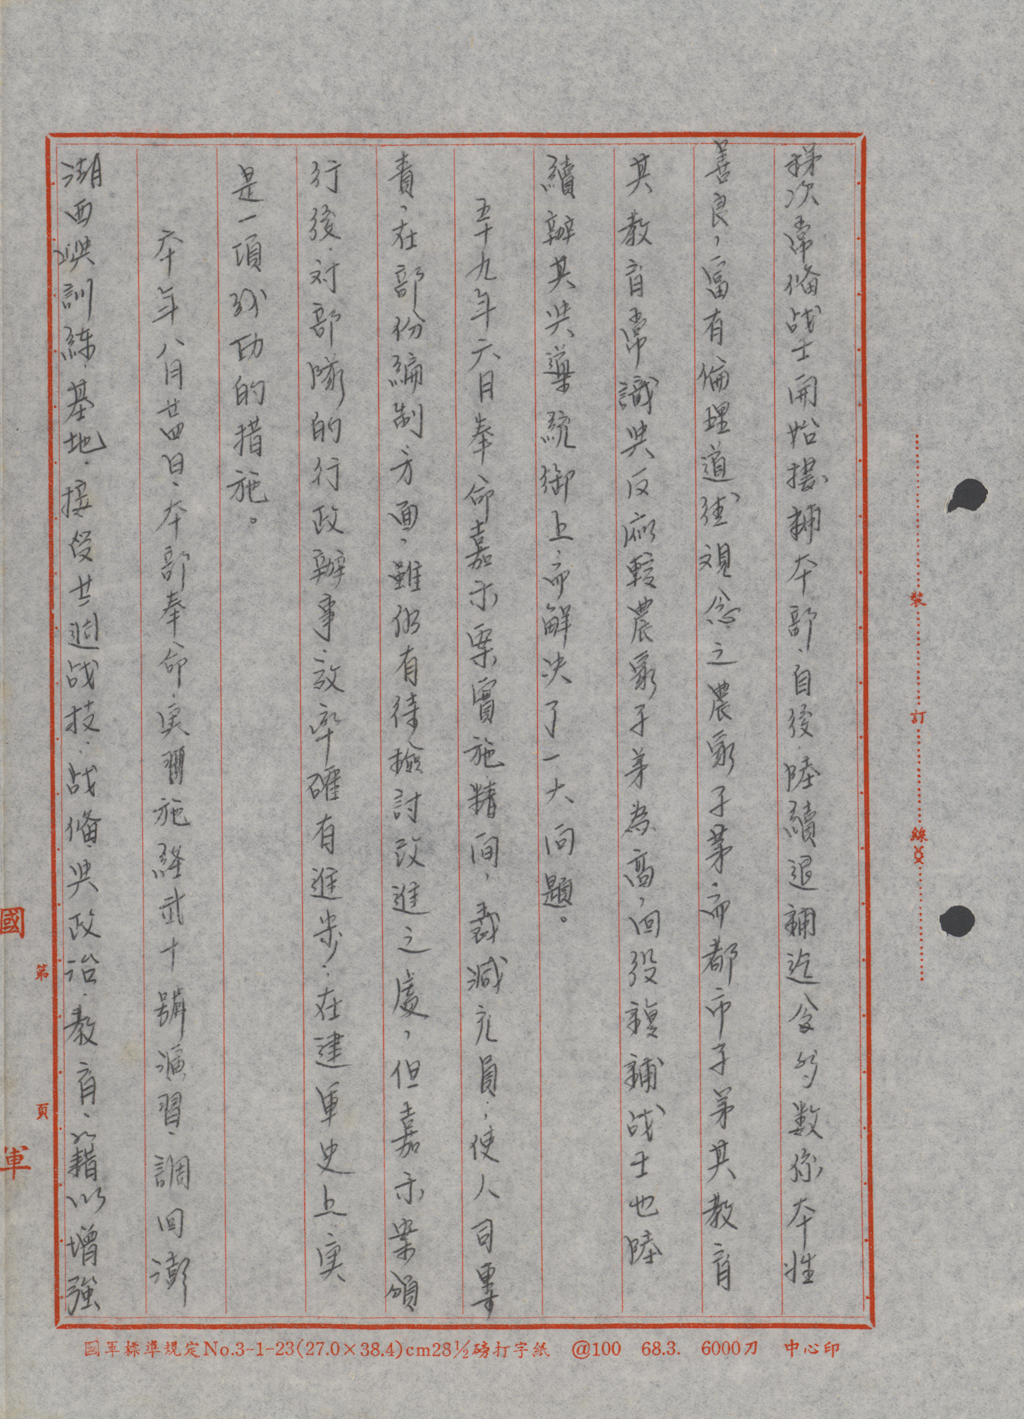 梯次常俻战士開始撥補本部、自後陸續退補迄今多数係本性
善良，富有倫理道德观念之農家子弟、而都市子弟其教育
其教育常識與反應較農家子弟為高，回役複補战士也陸
續辦其與導統御上、而解决了一大问題。
五十九年六月奉命嘉禾案實施精间，裁減冗員，使人司專
責，在部份編制方面，雖仍有待檢討改進之處，但嘉禾案頒
行後、対部隊的行政辦事、效率確有進步、在建軍史上、実
是一項成功的措施。
本年八月廿四日、本部奉命実習施經武十號演習、調回澎
湖西嶼訓練基地、接受廿週战技、战俻與政治、教育、以籍以增強
裝 訂 線
國 軍
第 頁
國軍標準規定No.3-1-23(27.0×38.4)cm28½磅打字紙 @100 68.3. 6000刀 中心印